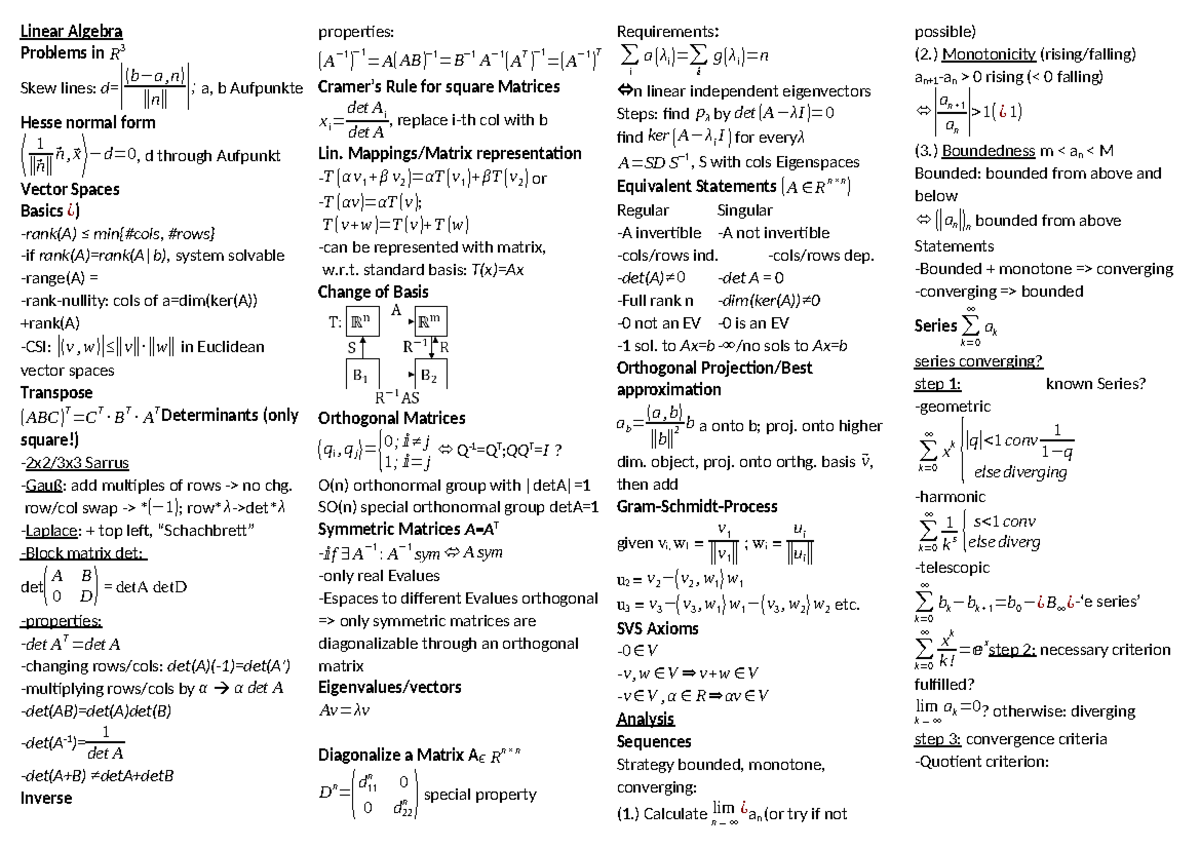 Linear Algebra
Problems in R³
Skew lines: d=|⟨b−a,n⟩/‖n‖|; a, b Aufpunkte
Hesse normal form
⟨1/‖n⃗‖ n⃗, x⃗⟩−d=0, d through Aufpunkt
Vector Spaces
Basics ¿)
-rank(A) ≤ min{#cols, #rows}
-if rank(A)=rank(A|b), system solvable
-range(A) =
-rank-nullity: cols of a=dim(ker(A))
+rank(A)
-CSI: |⟨v,w⟩|≤‖v‖·‖w‖ in Euclidean
vector spaces
Transpose
(ABC)ᵀ=Cᵀ·Bᵀ·Aᵀ Determinants (only
square!)
-2x2/3x3 Sarrus
-Gauß: add multiples of rows -> no chg.
row/col swap -> *(−1); row*λ->det*λ
-Laplace: + top left, “Schachbrett”
-Block matrix det:
det(A B
0 D) = detA detD
-properties:
-det Aᵀ=det A
-changing rows/cols: det(A)(-1)=det(A’)
-multiplying rows/cols by α → α det A
-det(AB)=det(A)det(B)
-det(A⁻¹)=1/det A
-det(A+B) ≠detA+detB
Inverse
properties:
(A⁻¹)⁻¹=A(AB)⁻¹=B⁻¹A⁻¹(Aᵀ)⁻¹=(A⁻¹)ᵀ
Cramer’s Rule for square Matrices
xᵢ=det Aᵢ/det A, replace i-th col with b
Lin. Mappings/Matrix representation
-T(αv₁+βv₂)=αT(v₁)+βT(v₂) or
-T(αv)=αT(v);
T(v+w)=T(v)+T(w)
-can be represented with matrix,
w.r.t. standard basis: T(x)=Ax
Change of Basis
A
T: ℝⁿ ℝᵐ
S R⁻¹ R
B₁ B₂
R⁻¹AS
Orthogonal Matrices
⟨qᵢ,qⱼ⟩={0; i≠j
1; i=j ⇔ Q⁻¹=Qᵀ;QQᵀ=I ?
O(n) orthonormal group with |detA|=1
SO(n) special orthonormal group detA=1
Symmetric Matrices A=Aᵀ
-if∃A⁻¹: A⁻¹ sym ⇔ A sym
-only real Evalues
-Espaces to different Evalues orthogonal
=> only symmetric matrices are
diagonalizable through an orthogonal
matrix
Eigenvalues/vectors
Av=λv
Diagonalize a Matrix A∈ Rⁿˣⁿ
Dⁿ=(d₁₁ⁿ 0
0 d₂₂ⁿ) special property
Requirements:
∑ᵢ a(λᵢ)=∑ᵢ g(λᵢ)=n
⇔n linear independent eigenvectors
Steps: find p_λ by det(A−λI)=0
find ker(A−λᵢI) for everyλ
A=SDS⁻¹, S with cols Eigenspaces
Equivalent Statements (A∈Rⁿˣⁿ)
Regular Singular
-A invertible -A not invertible
-cols/rows ind. -cols/rows dep.
-det(A)≠0 -det A = 0
-Full rank n -dim(ker(A))≠0
-0 not an EV -0 is an EV
-1 sol. to Ax=b -∞/no sols to Ax=b
Orthogonal Projection/Best
approximation
a_b=⟨a,b⟩/‖b‖² b a onto b; proj. onto higher
dim. object, proj. onto orthg. basis v⃗,
then add
Gram-Schmidt-Process
given vᵢ, w₁ = v₁/‖v₁‖ ; wᵢ = uᵢ/‖uᵢ‖
u₂ = v₂−⟨v₂,w₁⟩w₁
u₃ = v₃−⟨v₃,w₁⟩w₁−⟨v₃,w₂⟩w₂ etc.
SVS Axioms
-0∈V
-v,w∈V⇒v+w∈V
-v∈V,α∈R⇒αv∈V
Analysis
Sequences
Strategy bounded, monotone,
converging:
(1.) Calculate lim n−∞ ¿aₙ(or try if not
possible)
(2.) Monotonicity (rising/falling)
aₙ₊₁-aₙ > 0 rising (< 0 falling)
⇔|aₙ₊₁/aₙ|>1(¿1)
(3.) Boundedness m < aₙ < M
Bounded: bounded from above and
below
⇔ (‖aₙ‖)ₙ bounded from above
Statements
-Bounded + monotone => converging
-converging => bounded
Series ∑ₖ₌₀^∞ aₖ
series converging?
step 1: known Series?
-geometric
∑ₖ₌₀^∞ xᵏ {|q|<1 conv 1/1−q
else diverging
-harmonic
∑ₖ₌₀^∞ 1/kˢ {s<1 conv
else diverg
-telescopic
∑ₖ₌₀^∞ bₖ−bₖ₊₁=b₀−¿B∞¿-‘e series’
∑ₖ₌₀^∞ xᵏ/k!=eˣ step 2: necessary criterion
fulfilled?
lim k−∞ aₖ=0? otherwise: diverging
step 3: convergence criteria
-Quotient criterion: